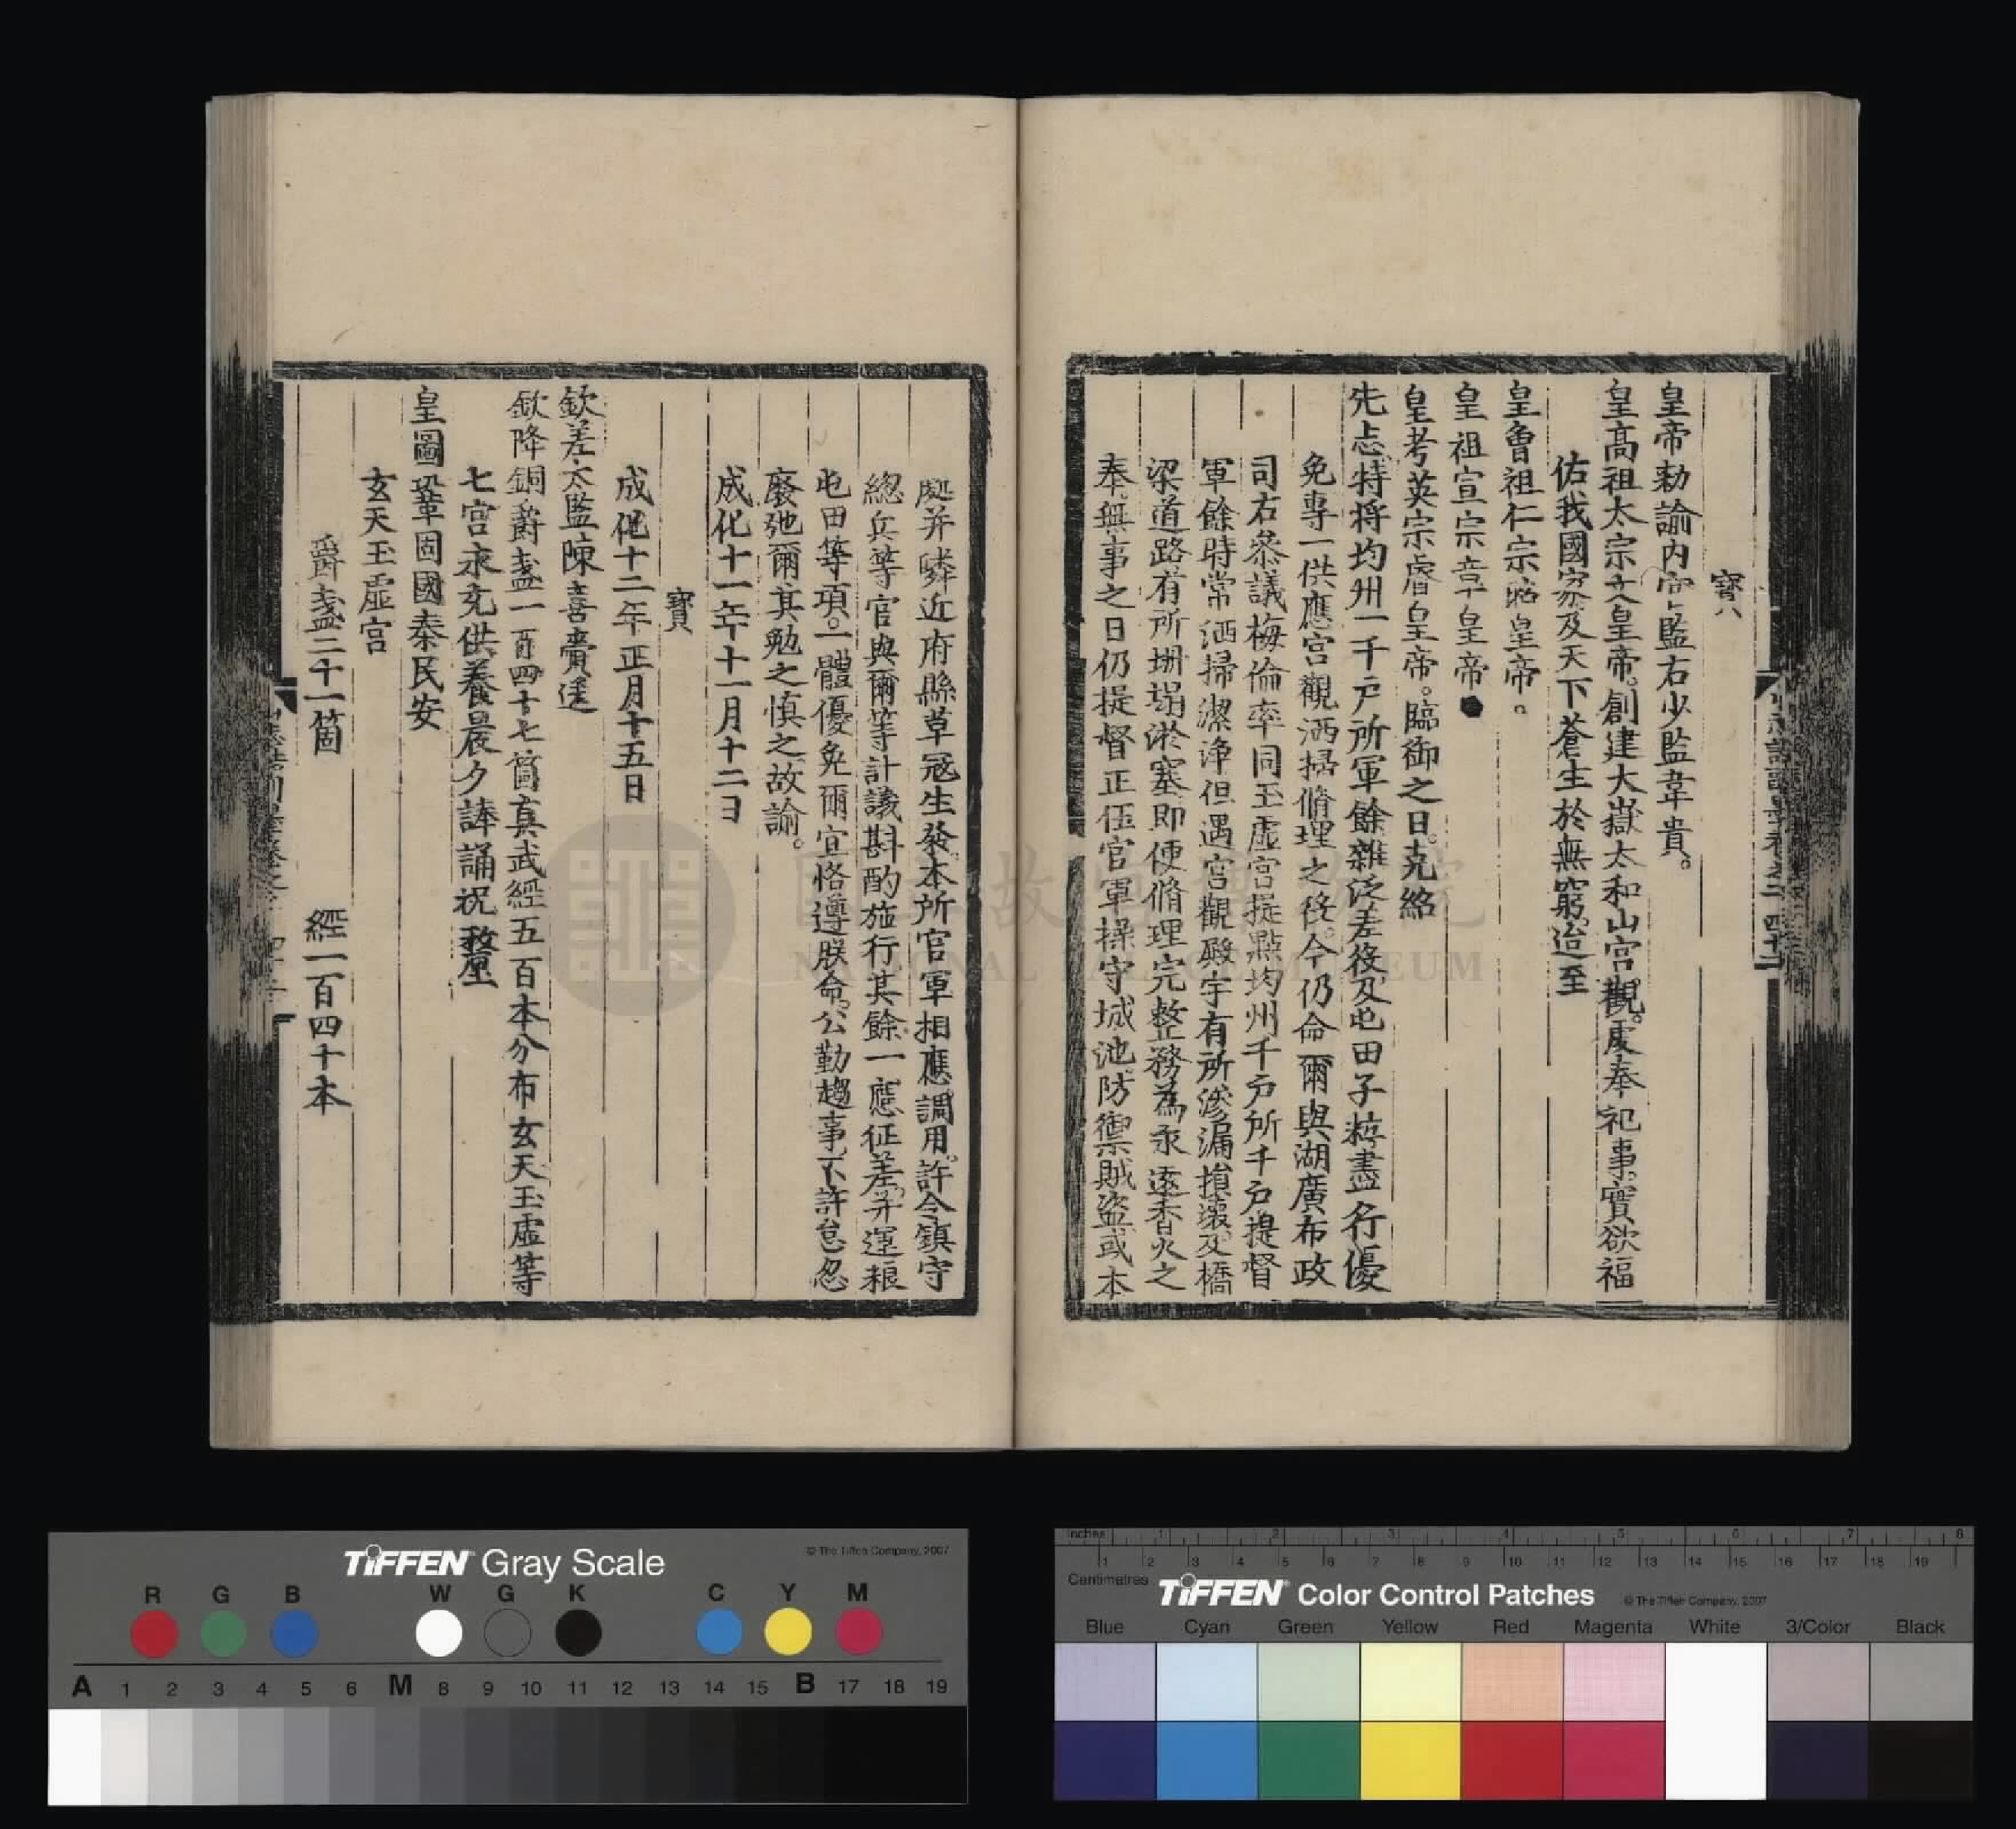 寳
皇帝勅諭内官監右少監韋貴。
皇高祖太宗文皇帝。創建大嶽太和山宮觀。虔奉祀事。實欲福
佑我國家及天下蒼生於無窮。迨至
皇曾祖仁宗昭皇帝。
皇祖宣宗章皇帝
皇考英宗睿皇帝。臨御之日。克紹
先志。特將均州一千戸所軍餘雜泛差役及屯田子粒盡行優
免專一供應宮觀洒掃脩理之役。今仍命爾與湖廣布政
司右叅議梅倫率同玉虛宮提點均州千戸所千戸提督
軍餘時常洒掃潔淨但遇宮觀殿宇有所滲漏損壞及橋
梁道路有所坍塌淤塞即便脩理完整務為永遠香火之
奉無事之日仍提督正伍官軍操守城池防禦賊盗或本
處并隣近府縣草冦生發本所官軍相應調用許令鎮守
總兵等官與爾等計議斟酌施行其餘一應征差并運粮
屯田等項。一體優免爾宜恪遵朕命公勤趨事不許怠忽
廢弛爾其勉之慎之故諭。
成化十一年十一月十二日
寳
成化十二年正月十五日
欽差太監陳喜賫送
欽降銅爵盞一百四十七箇真武經五百本分布玄天玉虛等
七宮永充供養晨夕諱誦祝釐
皇圖鞏固國泰民安
玄天玉虛宮
爵盞二十一箇 經一百四十本
國立故宮博物院
NATIONAL PALACE MUSEUM
TIFFEN Gray Scale
© The Tiffen Company, 2007
R G B W G K C Y M
A 1 2 3 4 5 6 M 8 9 10 11 12 13 14 15 B 17 18 19
Inches 1 2 3 4 5 6 7 8
1 2 3 4 5 6 7 8 9 10 11 12 13 14 15 16 17 18 19
Centimetres
TIFFEN Color Control Patches
© The Tiffen Company, 2007
Blue Cyan Green Yellow Red Magenta White 3/Color Black